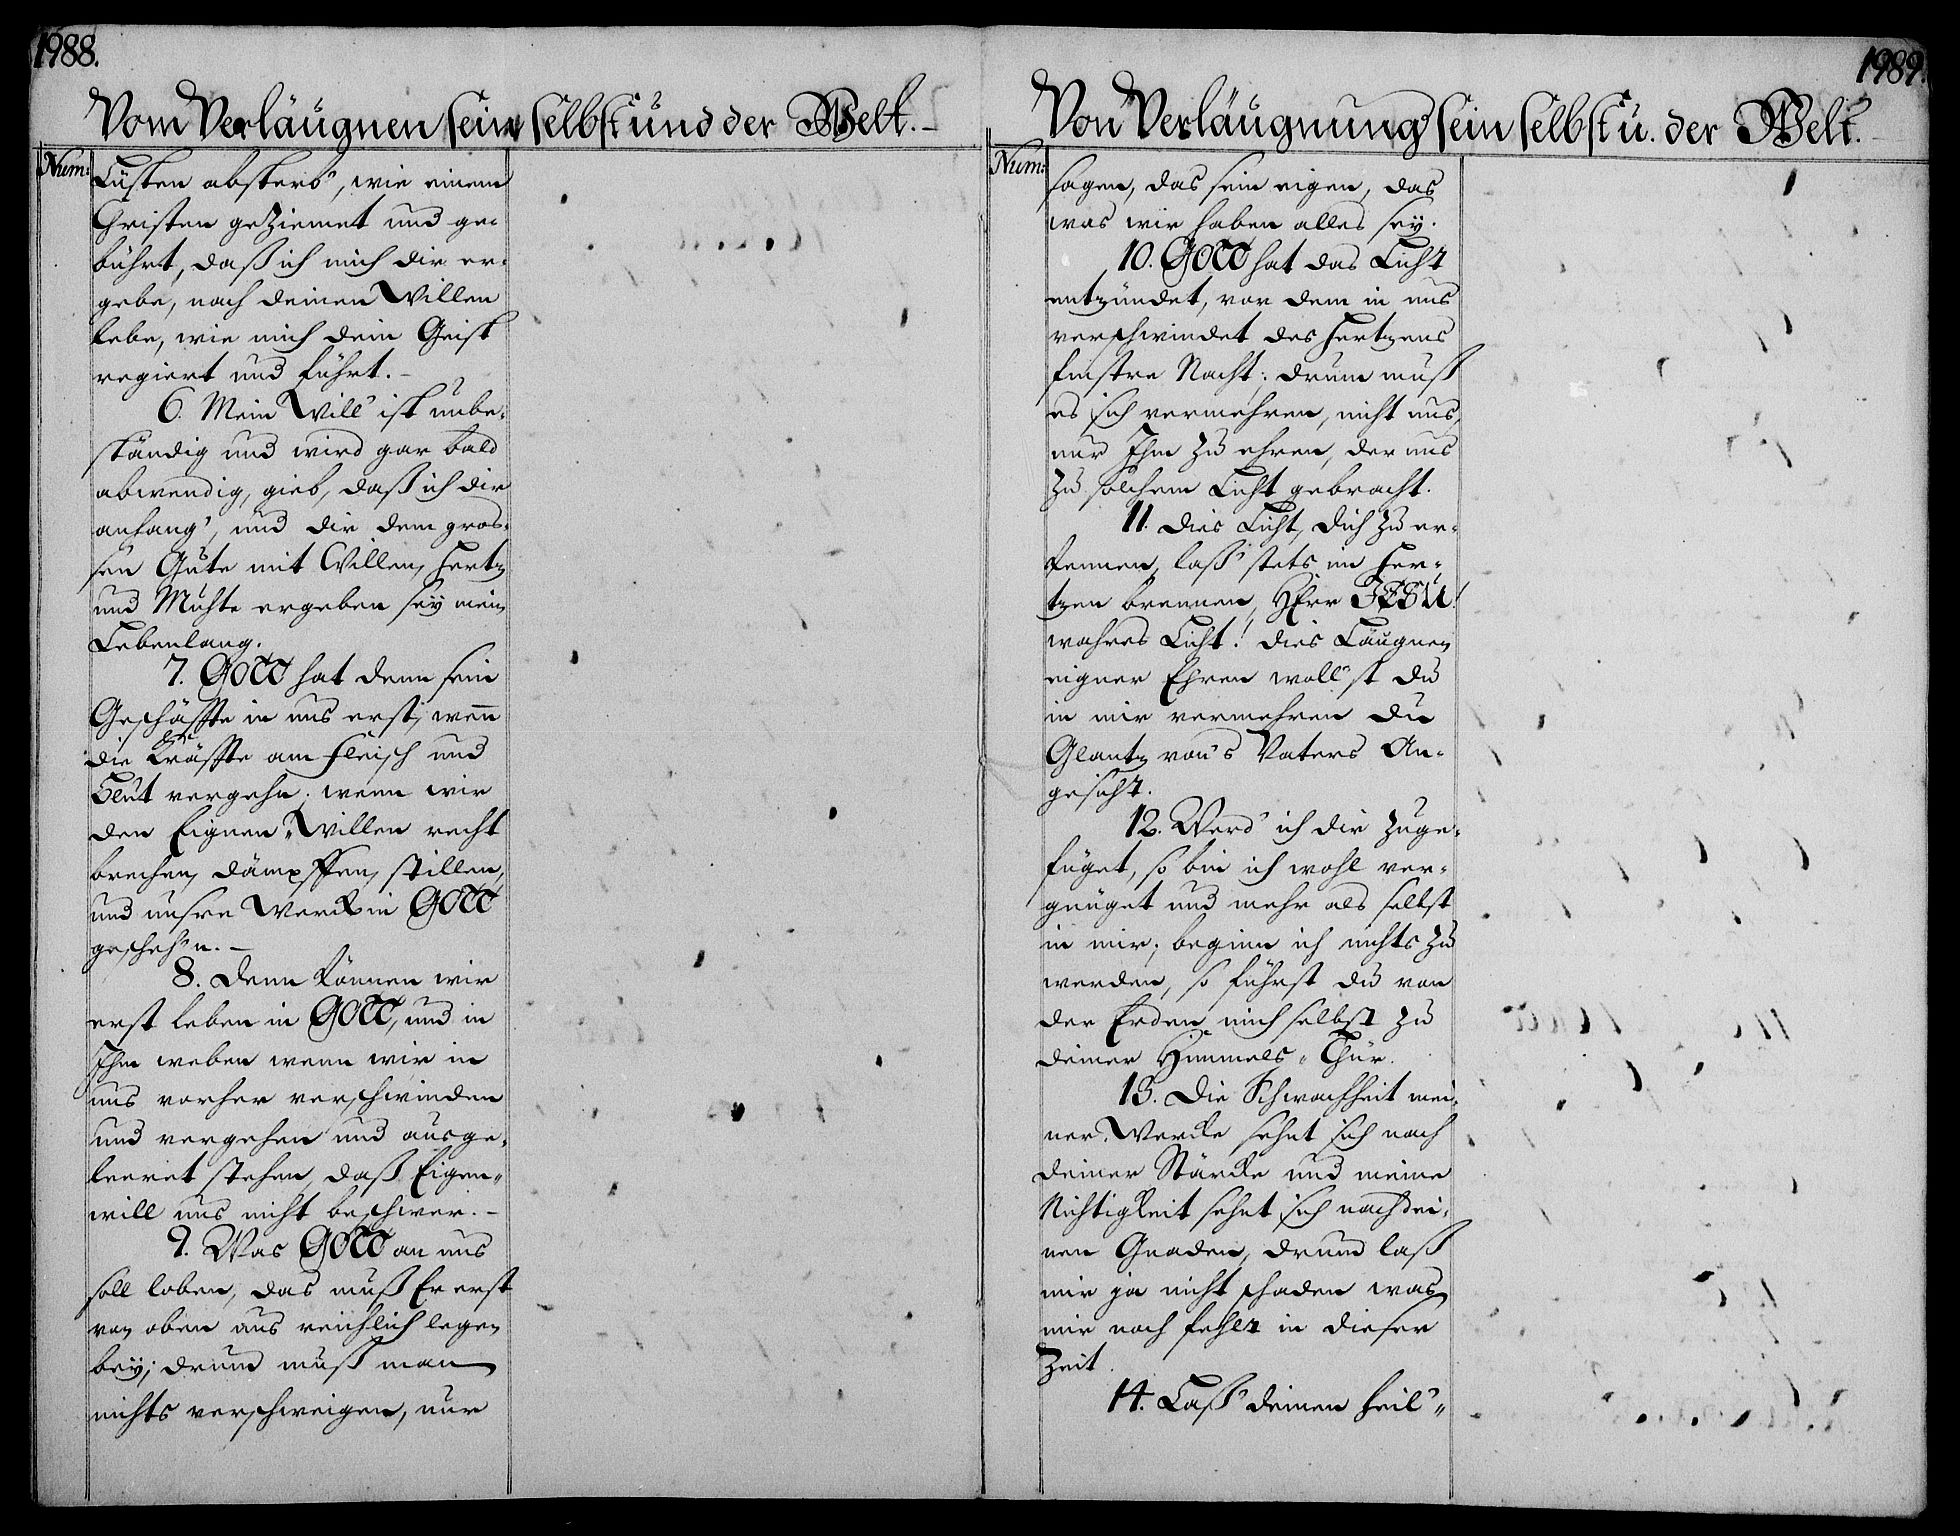 1988.
Vom Verläugnen sein selbst und der Welt.
Num:
Lüsten absterb', wie einem
Christen geziemet und ge-
bührt, daß ich mich dir er-
gebe, nach deinen Willen
lebe, wie mich dein Geist
regiert und führt.
6. Mein Will' ist unbe-
ständig und wird gar bald
abwendig, gieb, daß ich dir
anhang', und dir dem gros-
sen Gute mit Willen, Hertz
und Muhte ergeben sey mein
Lebenlang.
7. GOTT hat denn sein
Geschäffte in uns erst, wenn
die Kräffte am Fleisch und
Blut vergehn; wenn wir
den Eignen-Willen recht
brechen, dämpffen, stillen,
und unsre Werck in GOTT
gescheh'n.
8. Denn können wir
erst leben in GOTT, und in
Ihm weben wenn wir in
uns vorher verschwinden
und vergehen und ausge-
leeret stehen, daß Eigen-
will uns nicht beschwer.
9. Was GOTT an uns
soll loben, das muß Er erst
von oben aus reichlich legen
bey; drum muß man
nichts verschweigen, nur
1989.
Von Verläugnung sein selbst u. der Welt.
Num:
sagen, das sein eigen, das
was wir haben alles sey.
10. GOTT hat das Licht
entzündet, vor dem in uns
verschwindet des Hertzens
finstre Nacht; drum muß
es sich vermehren, nicht uns,
nur Ihm zu ehren, der uns
zu solchem Licht gebracht.
11. Dies Licht, dich zu er-
kennen, laß' stets im Her-
tzen brennen, HErr JESU!
wahres Licht! dies Läugnen
eigner Ehren woll'st du
in mir vermehren du
Glantz von's Vaters An-
gesicht.
12. Werd' ich dir zuge-
füget, so bin ich wohl ver-
gnüget und mehr als selbst
in mir; beginn ich nichts zu
werden, so führst du von
der Erden mich selbst zu
deiner Himmels-Thür.
13. Die Schwachheit mei-
ner Wercke sehnt sich nach
deiner Stärcke und meine
Nichtigkeit sehnt sich nach dei-
nen Gnaden, drum laß
mir ja nicht schaden was
mir noch fehlt in dieser
Zeit.
14. Laß' deinen Heil'-